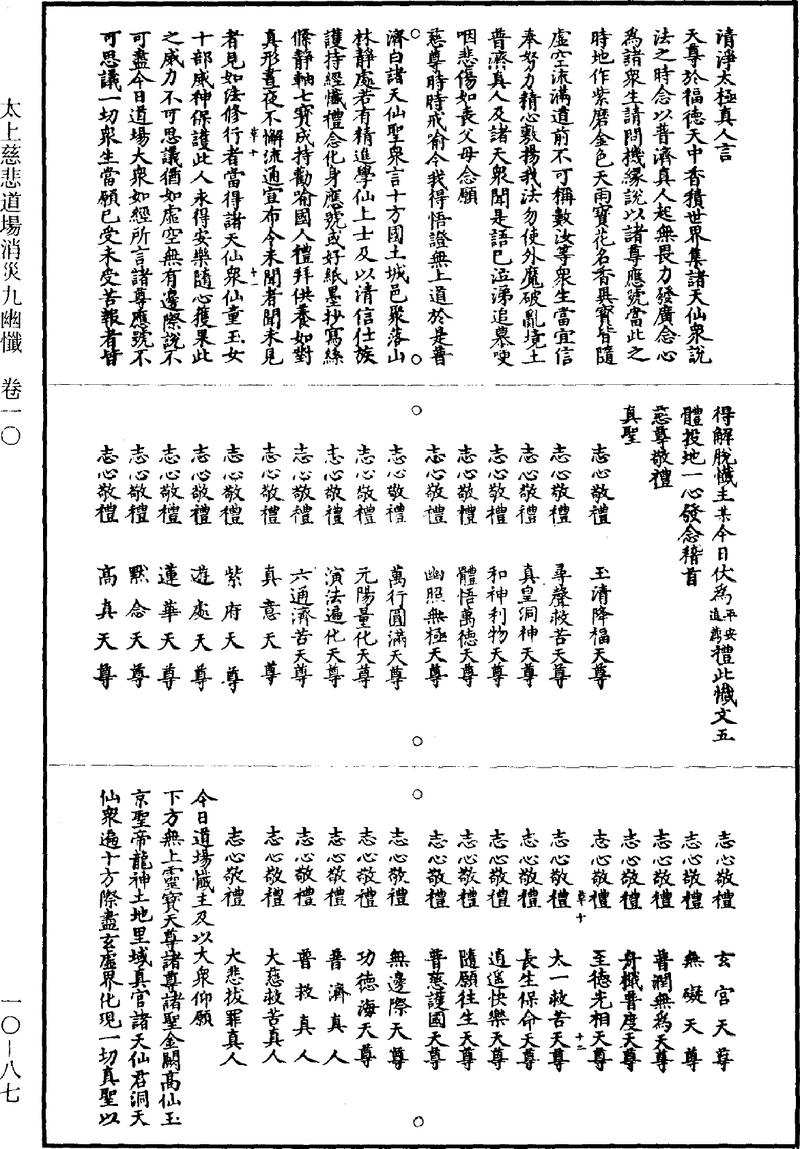 清淨太極真人言
天尊於福德天中香積世界集諸天仙衆說
法之時念以普濟真人起無畏力發廣念心
為諸衆生請問機緣說以諸尊應號當此之
時地作紫磨金色天雨寶花名香異寶皆隨
虛空流滿道前不可稱數汝等衆生當宜信
奉努力精心敷揚我法勿使外魔破亂境土
普濟真人及諸天衆聞是語已泣涕追慕哽
咽悲傷如喪父母念願
慈尊時時戒喻令我得悟證無上道於是普
濟白諸天仙聖衆言十方國土城邑聚落山
林靜處若有精進學仙上士及以清信仕族
護持經懺禮念化身應號或好紙墨抄寫絲
絛靜軸七寶成持勸喻國人禮拜供養如對
真形晝夜不懈流通宣布令未聞者聞未見
者見如法修行者當得諸天仙衆仙童玉女
十部威神保護此人永得安樂隨心獲果此
之威力不可思議猶如虛空無有邊際說不
可盡今日道場大衆如經所言諸尊應號不
可思議一切衆生當願已受未受苦報者皆
得解脫懺主某今日伏為平安追薦禮此懺文五
體投地一心發念稽首
慈尊敬禮
真聖
志心敬禮 玉清降福天尊
志心敬禮 尋聲救苦天尊
志心敬禮 真皇洞神天尊
志心敬禮 和神利物天尊
志心敬禮 體悟萬德天尊
志心敬禮 幽照無極天尊
志心敬禮 萬行圓滿天尊
志心敬禮 元陽量化天尊
志心敬禮 演法遍化天尊
志心敬禮 六通濟苦天尊
志心敬禮 真意天尊
志心敬禮 紫府天尊
志心敬禮 遊處天尊
志心敬禮 蓮華天尊
志心敬禮 默念天尊
志心敬禮 高真天尊
志心敬禮 玄宮天尊
志心敬禮 無礙天尊
志心敬禮 普潤無為天尊
志心敬禮 普度天尊
志心敬禮 至德光相天尊
志心敬禮 太一救苦天尊
志心敬禮 長生保命天尊
志心敬禮 逍遥快樂天尊
志心敬禮 隨願往生天尊
志心敬禮 普慈護國天尊
志心敬禮 無邊際天尊
志心敬禮 功德海天尊
志心敬禮 普濟真人
志心敬禮 普救真人
志心敬禮 大慈救苦真人
志心敬禮 大悲拔罪真人
今日道場懺主及以大衆仰願
下方無上靈寶天尊諸尊諸聖金闕高仙玉
京聖帝龍神土地里域真官諸天仙君洞天
仙衆遍十方際盡玄虛界化現一切真聖以
太上慈悲道場消災九幽懺 卷一〇
一〇－八七